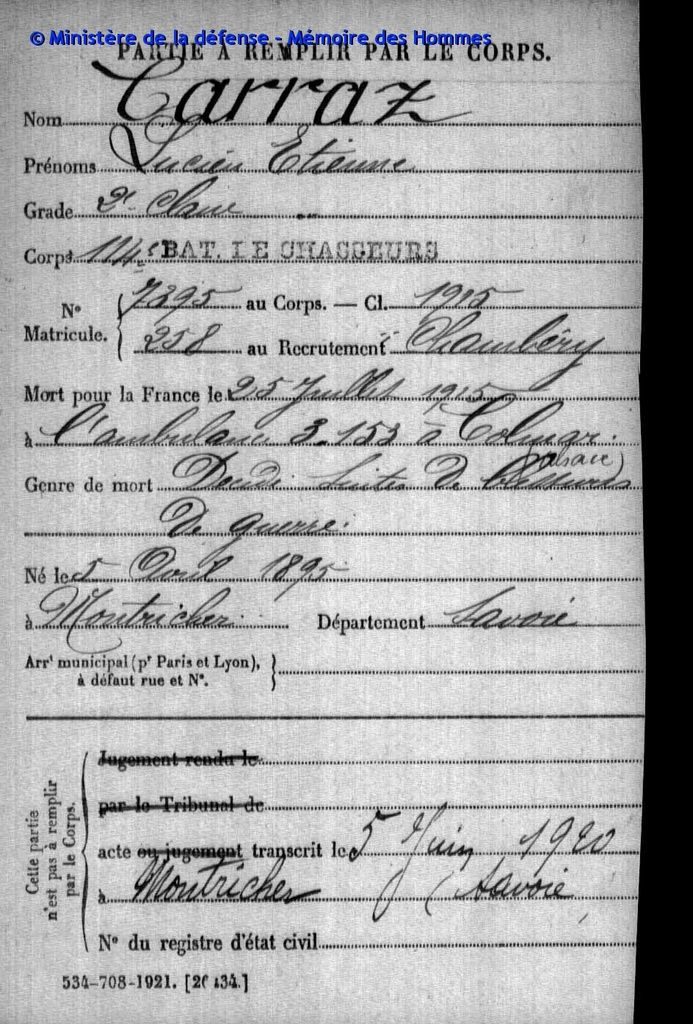 © Ministère de la défense - Mémoire des Hommes
PARTIE À REMPLIR PAR LE CORPS.
Nom Carraz
Prénoms Lucien Etienne
Grade 2e Classe
Corps 114e BAT. DE CHASSEURS
N° Matricule. { 7395 au Corps. — Cl. 1915
258 au Recrutement Chambéry
Mort pour la France le 25 Juillet 1915
à l'ambulance 3-153 à Colmar
(Alsace)
Genre de mort Décédé Suites de blessures
de guerre.
Né le 5 Avril 1895
à Montricher Département Savoie
Arrt municipal (pr Paris et Lyon),
à défaut rue et N°. }
Cette partie
n'est pas à remplir
par le Corps.
Jugement rendu le
par le Tribunal de
acte ou jugement transcrit le 5 Juin 1920
à Montricher (Savoie
N° du registre d'état civil
534-708-1921. [26434.]